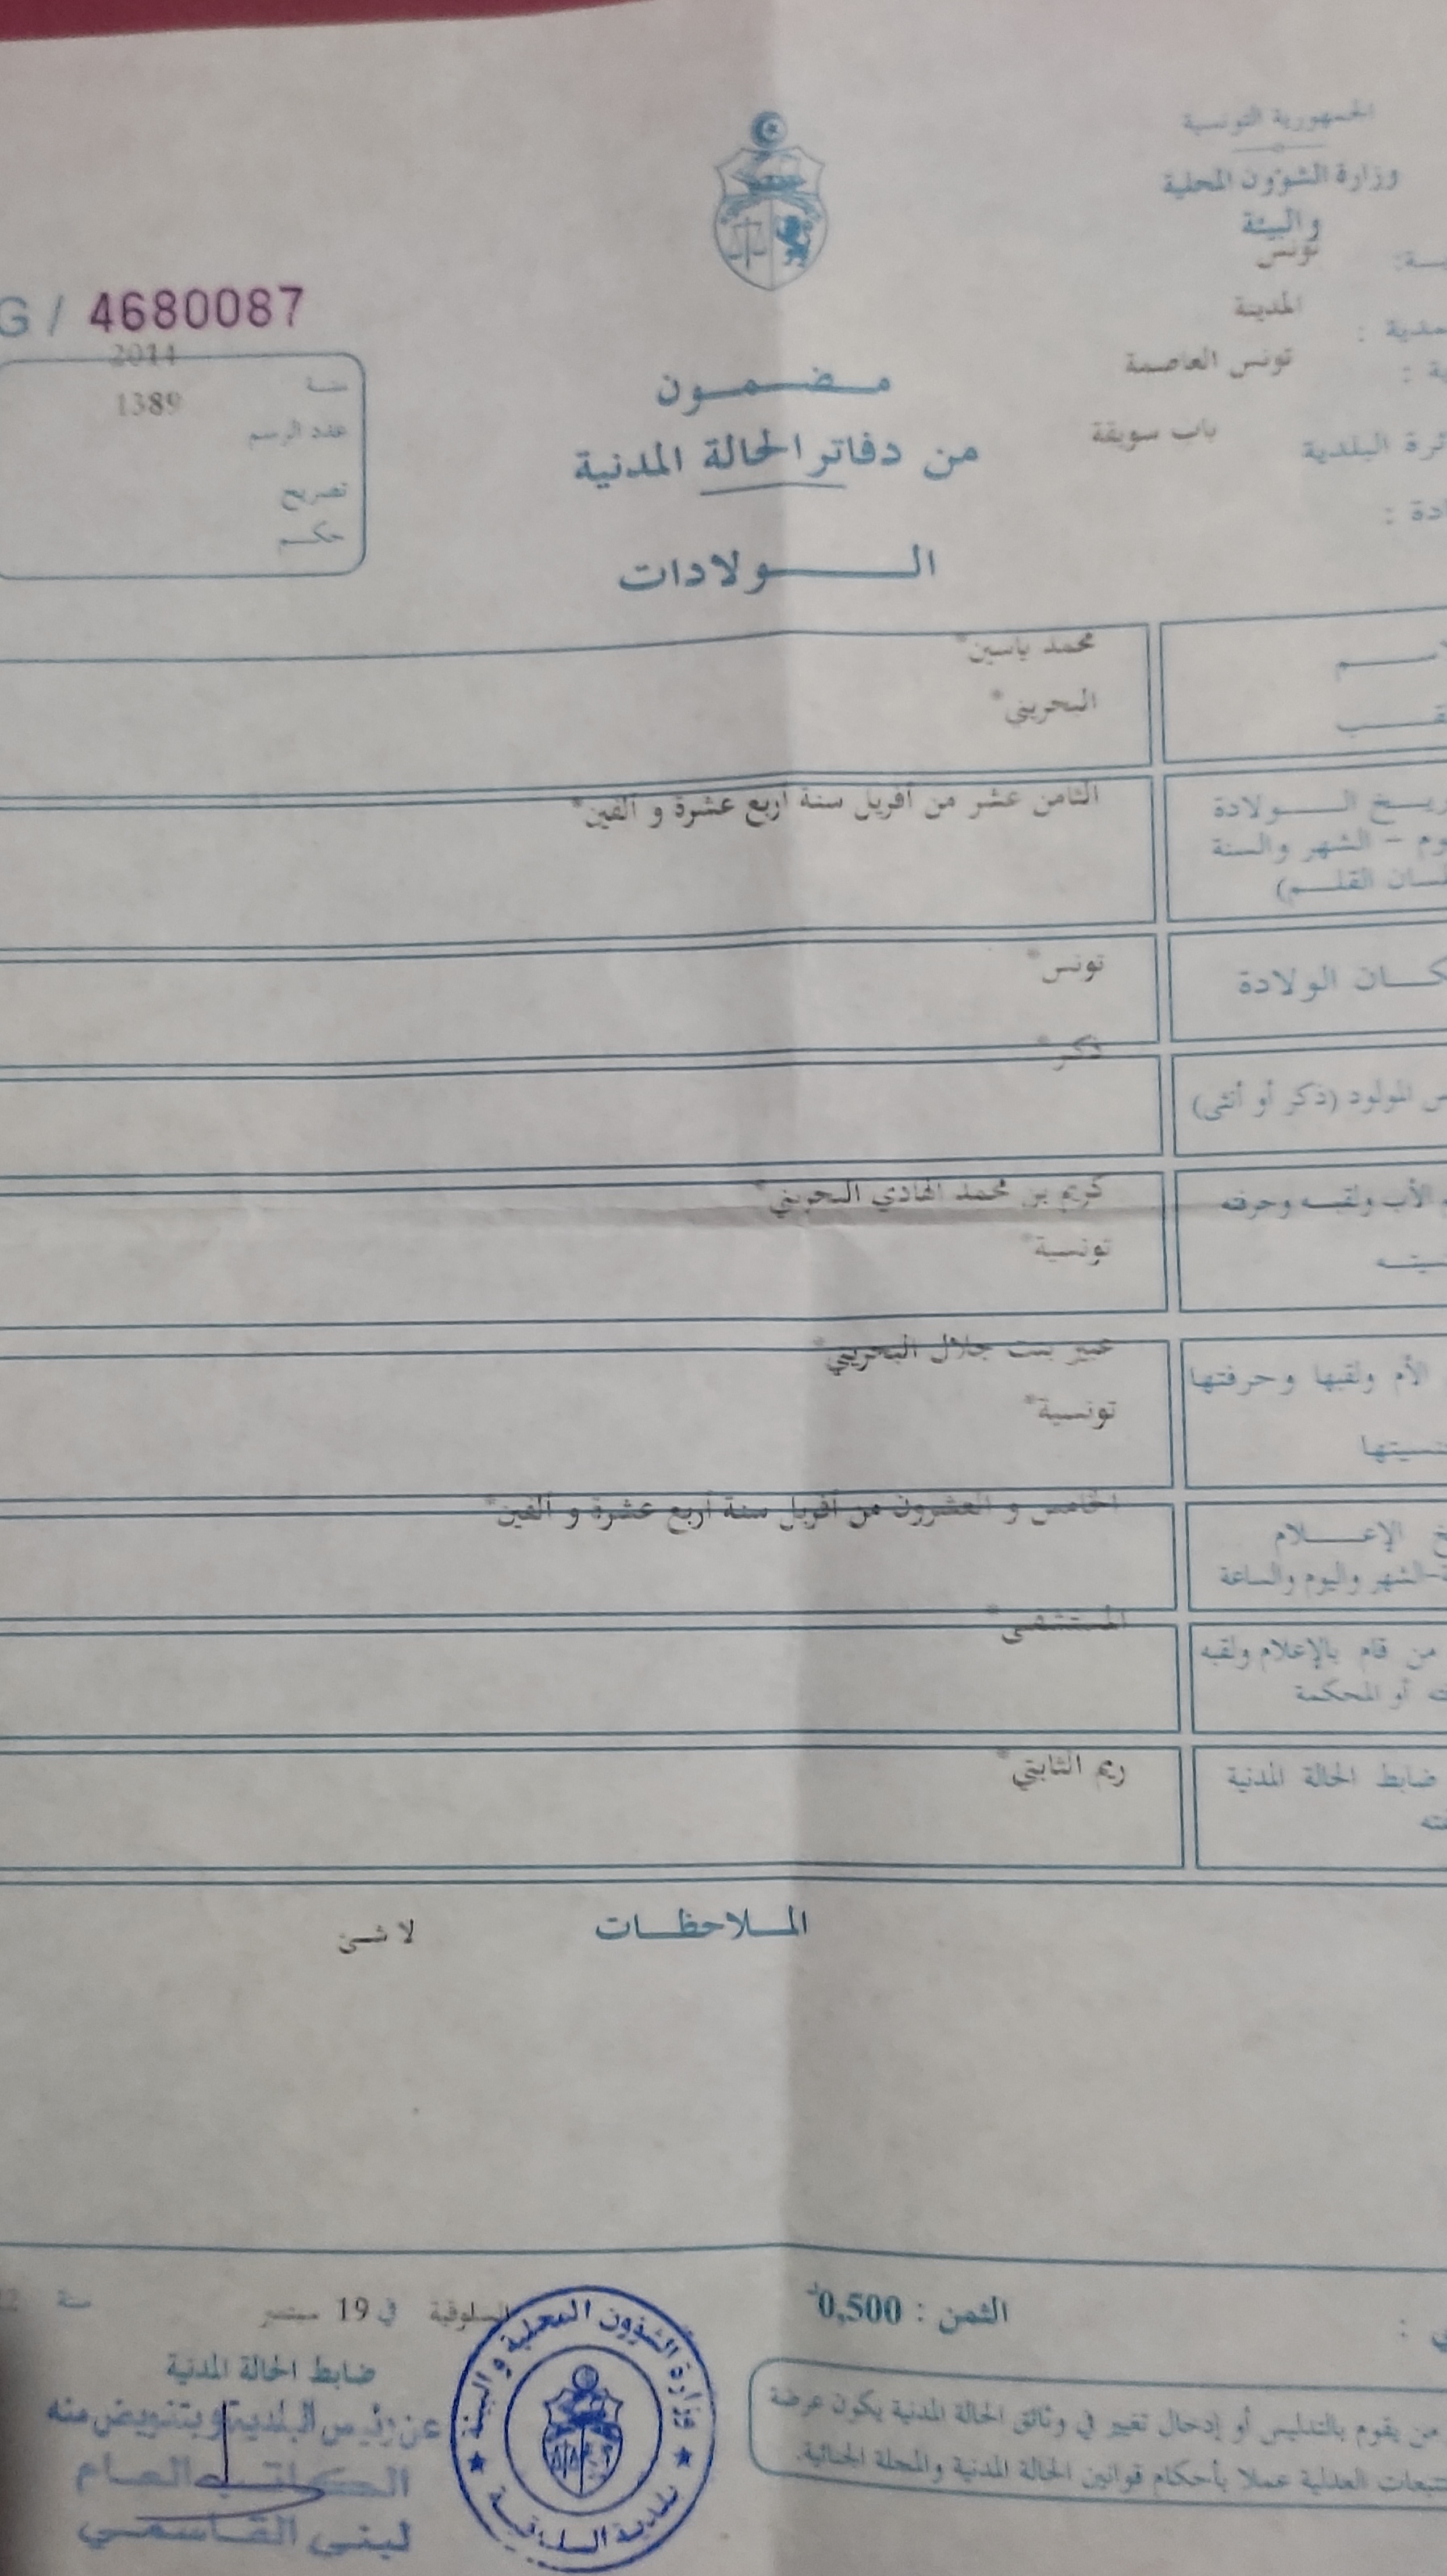 الجمهورية التونسية
وزارة الشؤون المحلية
والبيئة
تونس
المدينة
تونس العاصمة
باب سويقة
G / 4680087
2014
سنة
1389
عدد الرسم
تصريح
حكم
مضمون
من دفاتر الحالة المدنية
الولادات
محمد ياسين*
البحريني*
الولادة
الثامن عشر من أفريل سنة أربع عشرة و ألفين*
– الشهر والسنة
القلم)
الولادة
تونس*
المولود (ذكر أو أنثى)
ذكر*
الأب ولقبه وحرفته
كريم بن محمد الهادي البحريني*
تونسية*
الأم ولقبها وحرفتها
عبير بنت جلال البحريني*
تونسية*
الإعلام
الخامس و العشرون من أفريل سنة أربع عشرة و ألفين*
-الشهر واليوم والساعة
من قام بالإعلام ولقبه
أو المحكمة
المستشفى*
ضابط الحالة المدنية
ريم الثابتي*
الملاحظات
لا شئ
الثمن : 0,500د
السلوقية في 19 سبتمبر سنة
ضابط الحالة المدنية
عن رئيس البلدية وبتفويض منه
الكاتب العام
لبنى القاسمي
وزارة الشؤون المحلية والبيئة
بلدية السلوقية
من يقوم بالتدليس أو إدخال تغيير في وثائق الحالة المدنية يكون عرضة
العدلية عملا بأحكام قوانين الحالة المدنية والمجلة الجنائية.